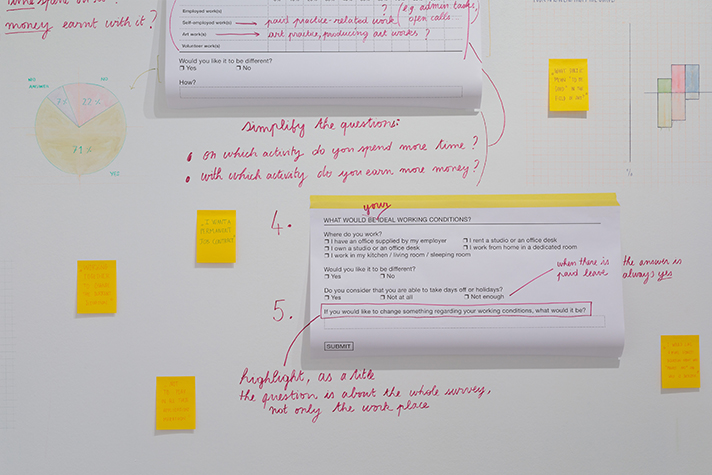 money earnt with it?
Employed work(s)
Self-employed work(s)
Art work(s)
Volunteer work(s)
? (e.g. admin tasks,
paid practice-related work open calls...
art practice, producing art works ?
Would you like it to be different?
Yes
No
How?
7%
22%
71%
YES
simplify the questions:
on which activity do you spend more time?
with which activity do you earn more money?
4.
your
WHAT WOULD BE IDEAL WORKING CONDITIONS?
Where do you work?
I have an office supplied by my employer
I rent a studio or an office desk
I own a studio or an office desk
I work from home in a dedicated room
I work in my kitchen / living room / sleeping room
Would you like it to be different?
Yes
No
Do you consider that you are able to take days off or holidays?
Yes
Not at all
Not enough
when there is the answer is
paid leave always yes
5.
If you would like to change something regarding your working conditions, what would it be?
SUBMIT
highlight, as a title
the question is about the whole survey,
not only the work place
I WANT A
PERMANENT
JOB CONTRACT